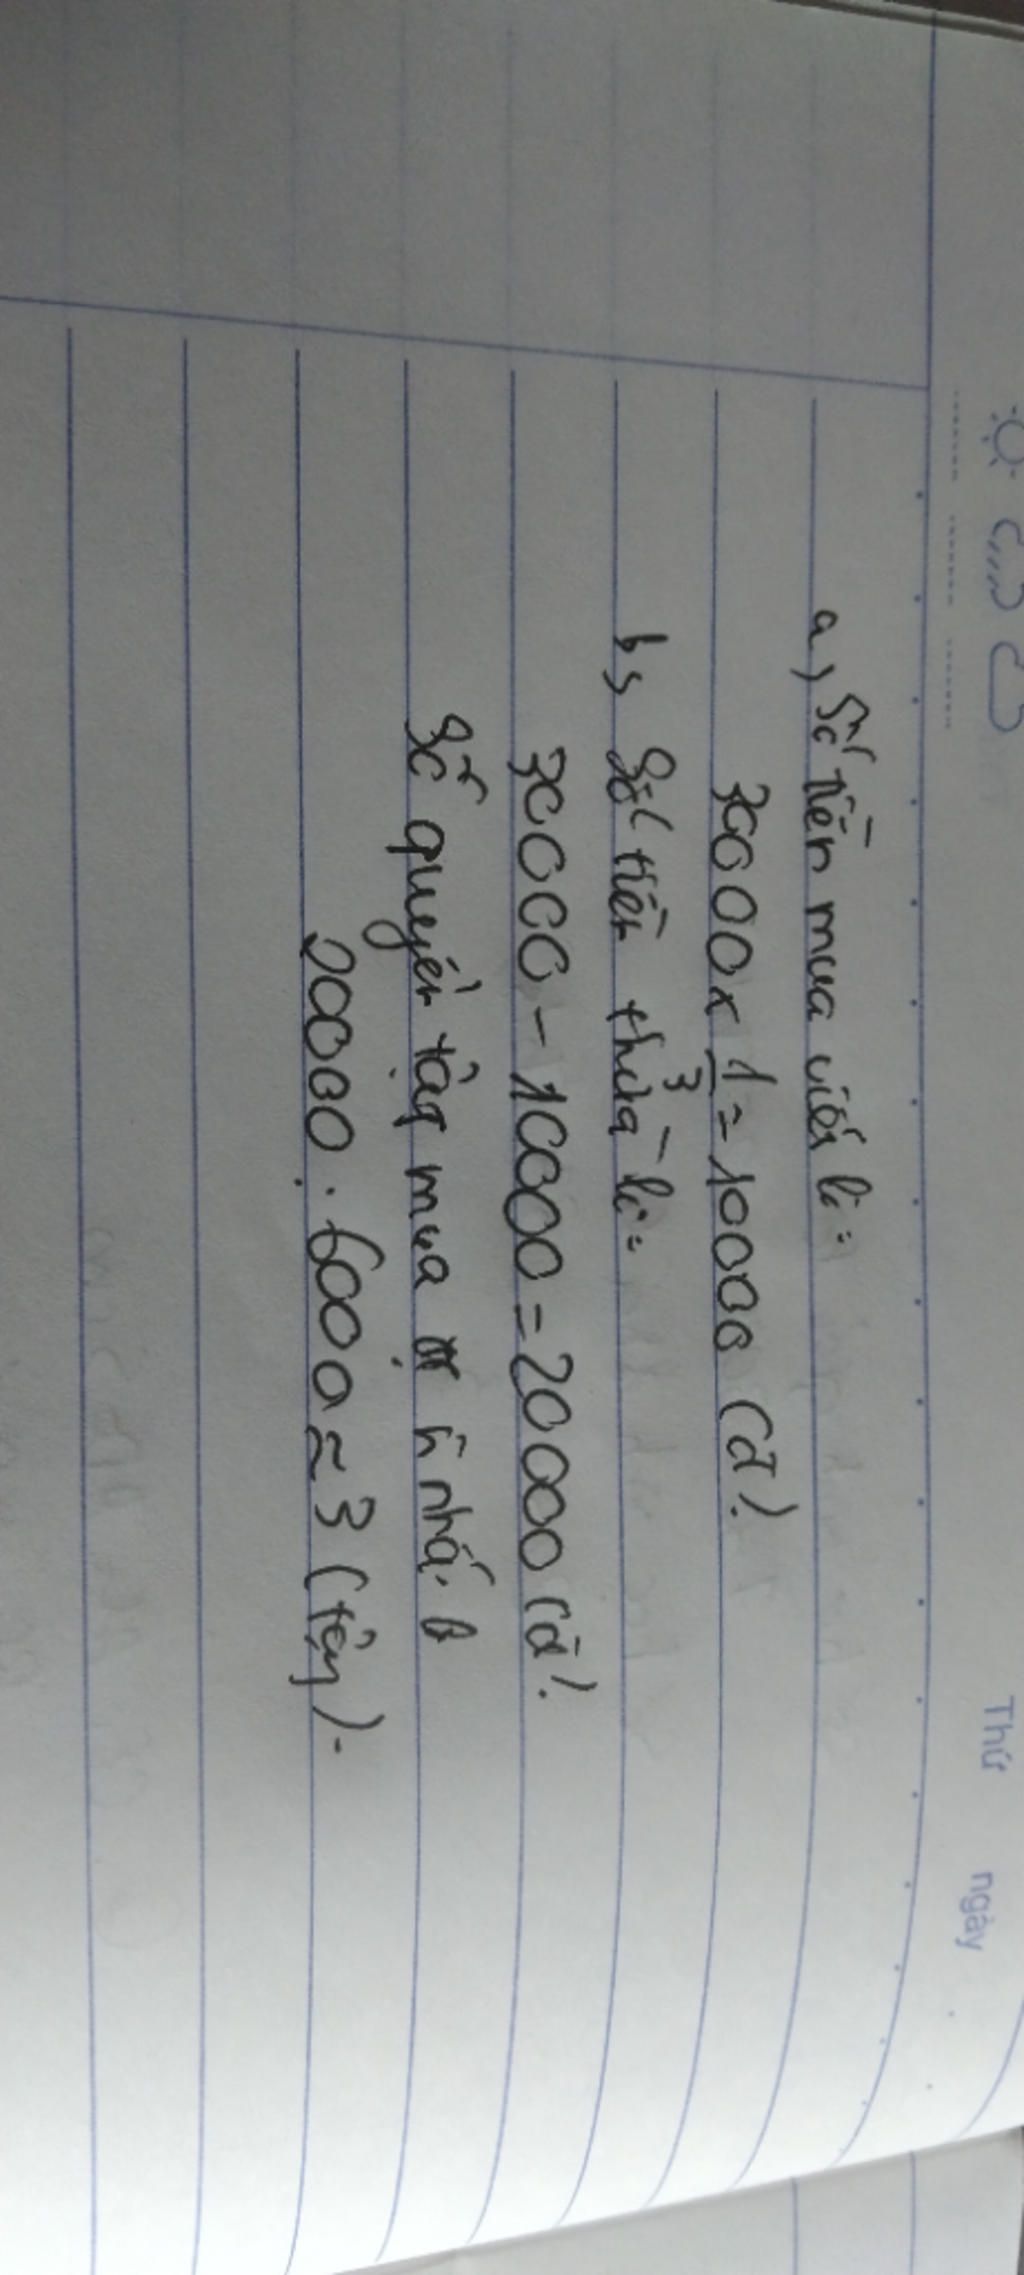 Thứ ngày
a, Số tiền mua viết là:
30000 x 1/3 = 10000 (đ)
b, Số tiền thừa là:
30000 - 10000 = 20000 (đ)
Số quyển tập mua nhất là
20000 : 6000 ≈ 3 (tập).